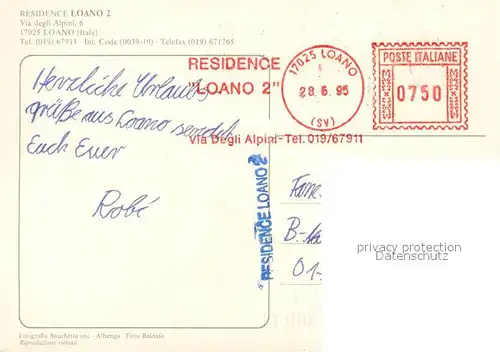 RESIDENCE LOANO 2
Via degli Alpini, 6
17025 LOANO (Italy)
Tel. (019) 67911 - Int. Code (0039-19) - Telefax (019) 671765
RESIDENCE
"LOANO 2"
Via Degli Alpini-Tel. 019/67911
17025 LOANO
28.6.95
(SV)
POSTE ITALIANE
0750
Herzliche Urlaubs
grüße aus Loano sendet
Euch Euer
Robé
RESIDENCE LOANO 2
Fam.
B-
01-
privacy protection
Datenschutz
Litografia Bacchetta snc - Albenga - Foto Rainisio
Riproduzione vietata